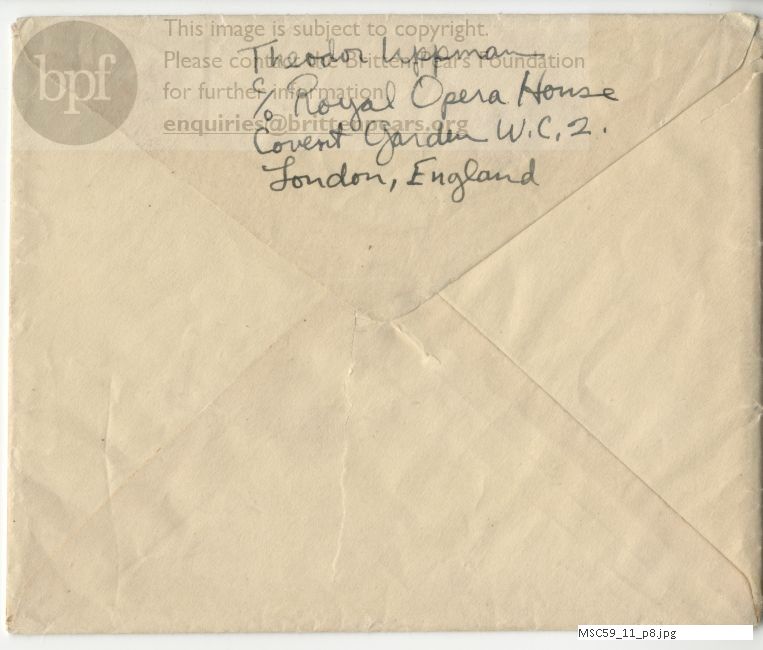 This image is subject to copyright.
Please contact the Britten-Pears Foundation
for further information
enquiries@brittenpears.org
bpf
Theodor Uppman
c/o Royal Opera House
Covent Garden W.C.2.
London, England
MSC59_11_p8.jpg